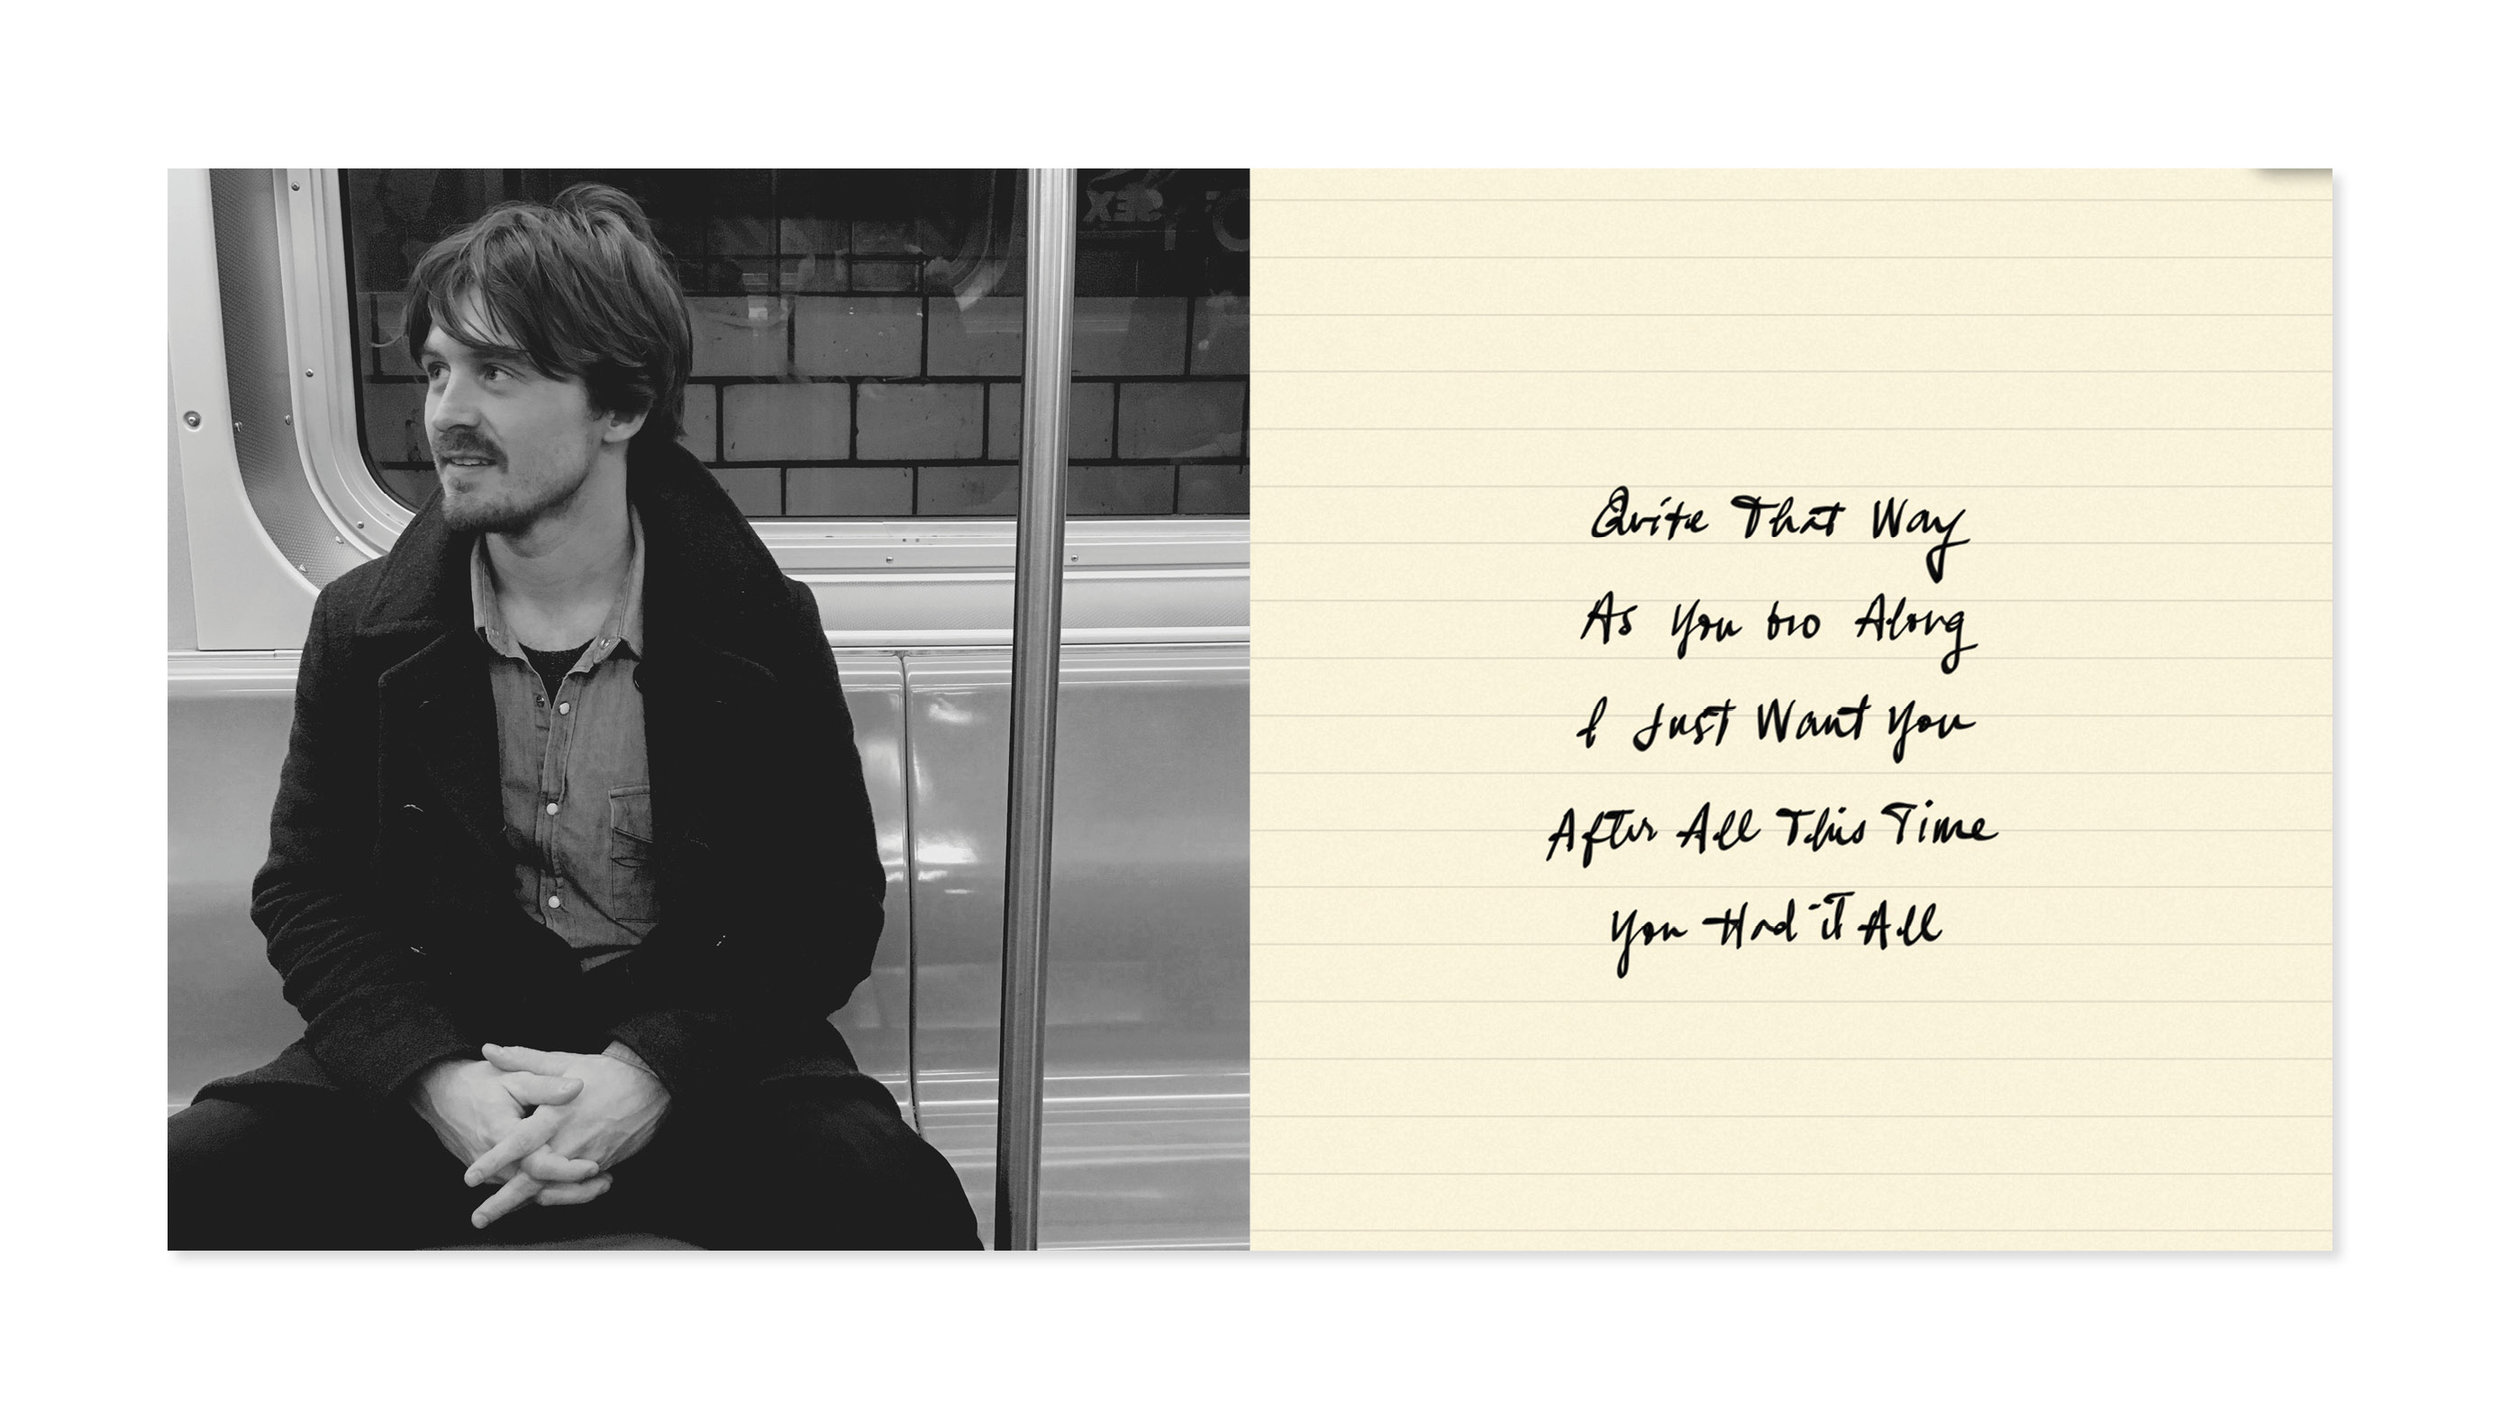 SEX
Quite That Way
As You Go Along
I Just Want You
After All This Time
You Had it All